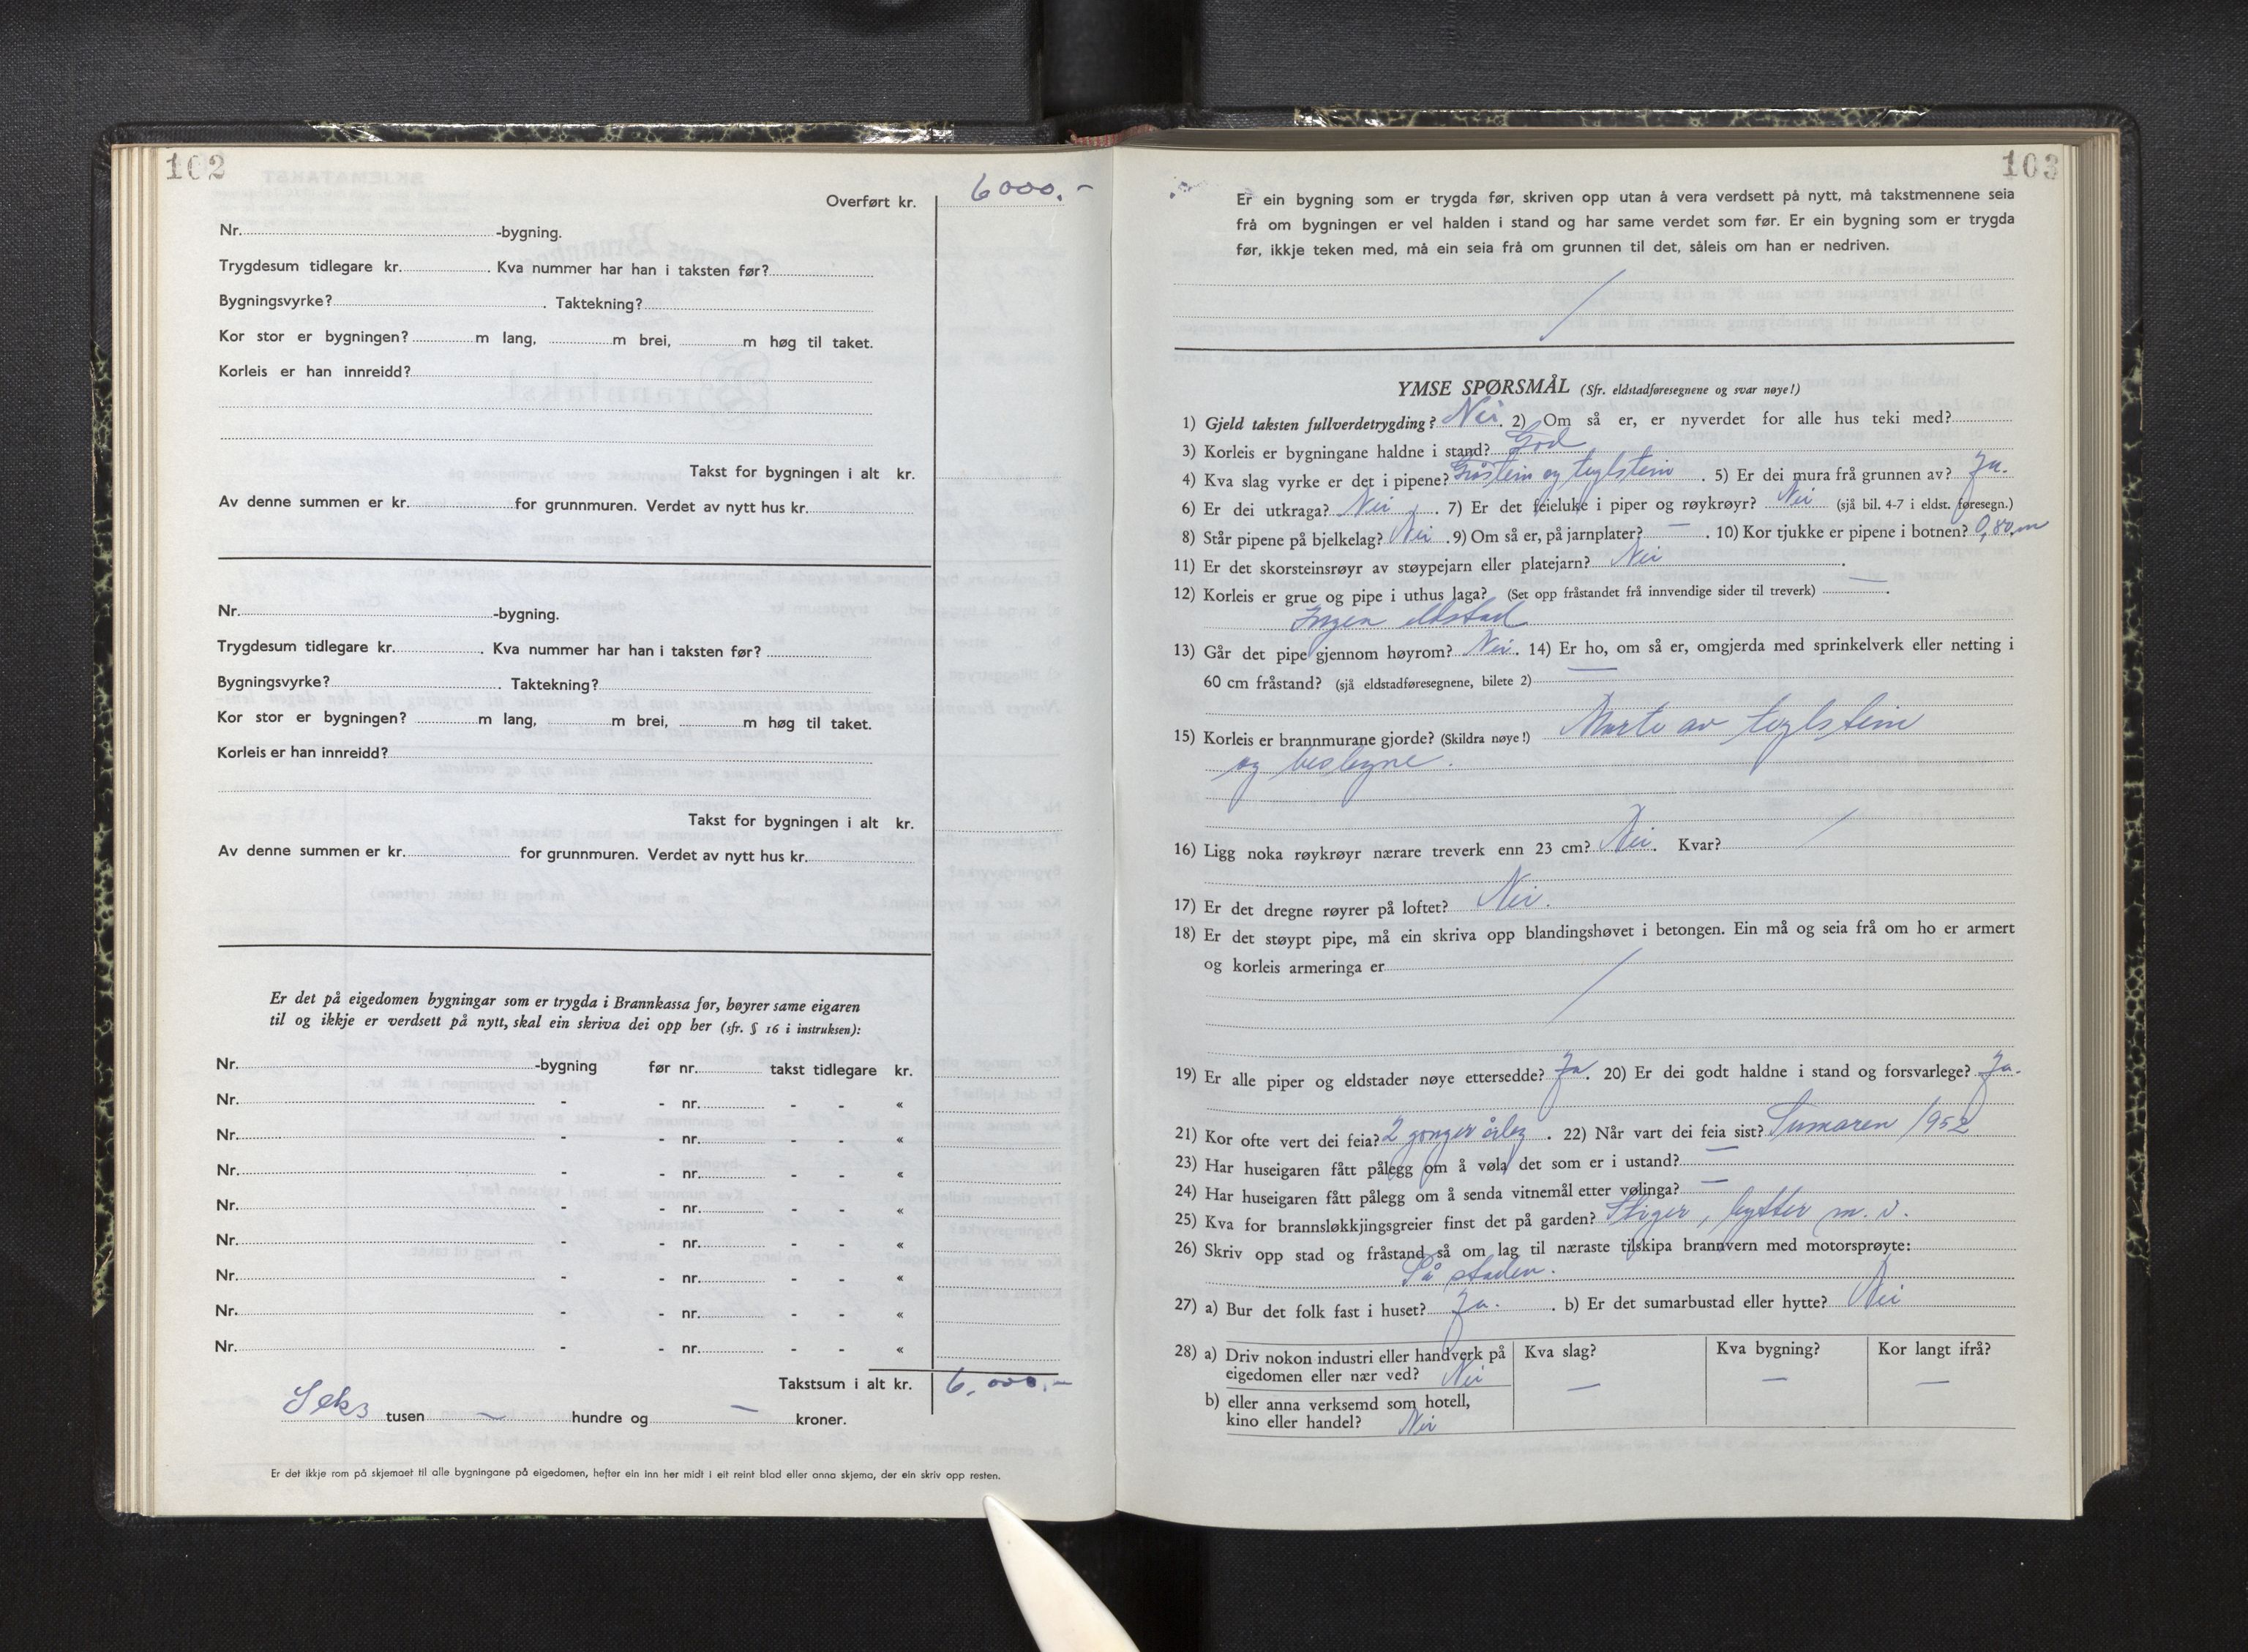 102
Overført kr. 6000.-
Nr. -bygning.
Trygdesum tidlegare kr. . Kva nummer har han i taksten før?
Bygningsvyrke? . Taktekning?
Kor stor er bygningen? m lang, m brei, m høg til taket.
Korleis er han innreidd?
Takst for bygningen i alt kr.
Av denne summen er kr. for grunnmuren. Verdet av nytt hus kr.
Nr. -bygning.
Trygdesum tidlegare kr. . Kva nummer har han i taksten før?
Bygningsvyrke? . Taktekning?
Kor stor er bygningen? m lang, m brei, m høg til taket.
Korleis er han innreidd?
Takst for bygningen i alt kr.
Av denne summen er kr. for grunnmuren. Verdet av nytt hus kr.
Er det på eigedomen bygningar som er trygda i Brannkassa før, høyrer same eigaren
til og ikkje er verdsett på nytt, skal ein skriva dei opp her (sfr. § 16 i instruksen):
Nr. -bygning før nr. takst tidlegare kr.
Nr. - - nr. - - «
Nr. - - nr. - - «
Nr. - - nr. - - «
Nr. - - nr. - - «
Nr. - - nr. - - «
Nr. - - nr. - - «
Nr. - - nr. - - «
Nr. - - nr. - - «
Takstsum i alt kr. 6.000.-
Seks tusen — hundre og — kroner.
Er det ikkje rom på skjemaet til alle bygningane på eigedomen, hefter ein inn her midt i eit reint blad eller anna skjema, der ein skriv opp resten.
103
Er ein bygning som er trygda før, skriven opp utan å vera verdsett på nytt, må takstmennene seia
frå om bygningen er vel halden i stand og har same verdet som før. Er ein bygning som er trygda
før, ikkje teken med, må ein seia frå om grunnen til det, såleis om han er nedriven.
/
YMSE SPØRSMÅL (Sfr. eldstadføresegnene og svar nøye!)
1) Gjeld taksten fullverdetrygding? Nei. 2) Om så er, er nyverdet for alle hus teki med?
3) Korleis er bygningane haldne i stand? God
4) Kva slag vyrke er det i pipene? Gråstein og teglstein. 5) Er dei mura frå grunnen av? Ja.
6) Er dei utkraga? Nei. 7) Er det feieluke i piper og røykrøyr? Nei (sjå bil. 4-7 i eldst. føresegn.)
8) Står pipene på bjelkelag? Nei. 9) Om så er, på jarnplater? —. 10) Kor tjukke er pipene i botnen? 0,80 m
11) Er det skorsteinsrøyr av støypejarn eller platejarn? Nei.
12) Korleis er grue og pipe i uthus laga? (Set opp fråstandet frå innvendige sider til treverk) —.
Ingen eldstad
13) Går det pipe gjennom høyrom? Nei. 14) Er ho, om så er, omgjerda med sprinkelverk eller netting i
60 cm fråstand? (sjå eldstadføresegnene, bilete 2) —
15) Korleis er brannmurane gjorde? (Skildra nøye!) Murte av teglstein
og beslegne.
16) Ligg noka røykrøyr nærare treverk enn 23 cm? Nei. Kvar? /
17) Er det dregne røyrer på loftet? Nei.
18) Er det støypt pipe, må ein skriva opp blandingshøvet i betongen. Ein må og seia frå om ho er armert
og korleis armeringa er /
19) Er alle piper og eldstader nøye ettersedde? Ja. 20) Er dei godt haldne i stand og forsvarlege? Ja.
21) Kor ofte vert dei feia? 2 gonger årleg. 22) Når vart dei feia sist? Sumaren 1952
23) Har huseigaren fått pålegg om å vøla det som er i ustand? —
24) Har huseigaren fått pålegg om å senda vitnemål etter vølinga? —
25) Kva for brannsløkkjingsgreier finst det på garden? Stiger, bytter m. v.
26) Skriv opp stad og fråstand så om lag til næraste tilskipa brannvern med motorsprøyte:
På staden.
27) a) Bur det folk fast i huset? Ja. . b) Er det sumarbustad eller hytte? Nei
28) a) Driv nokon industri eller handverk på eigedomen eller nær ved? Nei
Kva slag? —
Kva bygning? —
Kor langt ifrå? —
b) eller anna verksemd som hotell,
kino eller handel? Nei